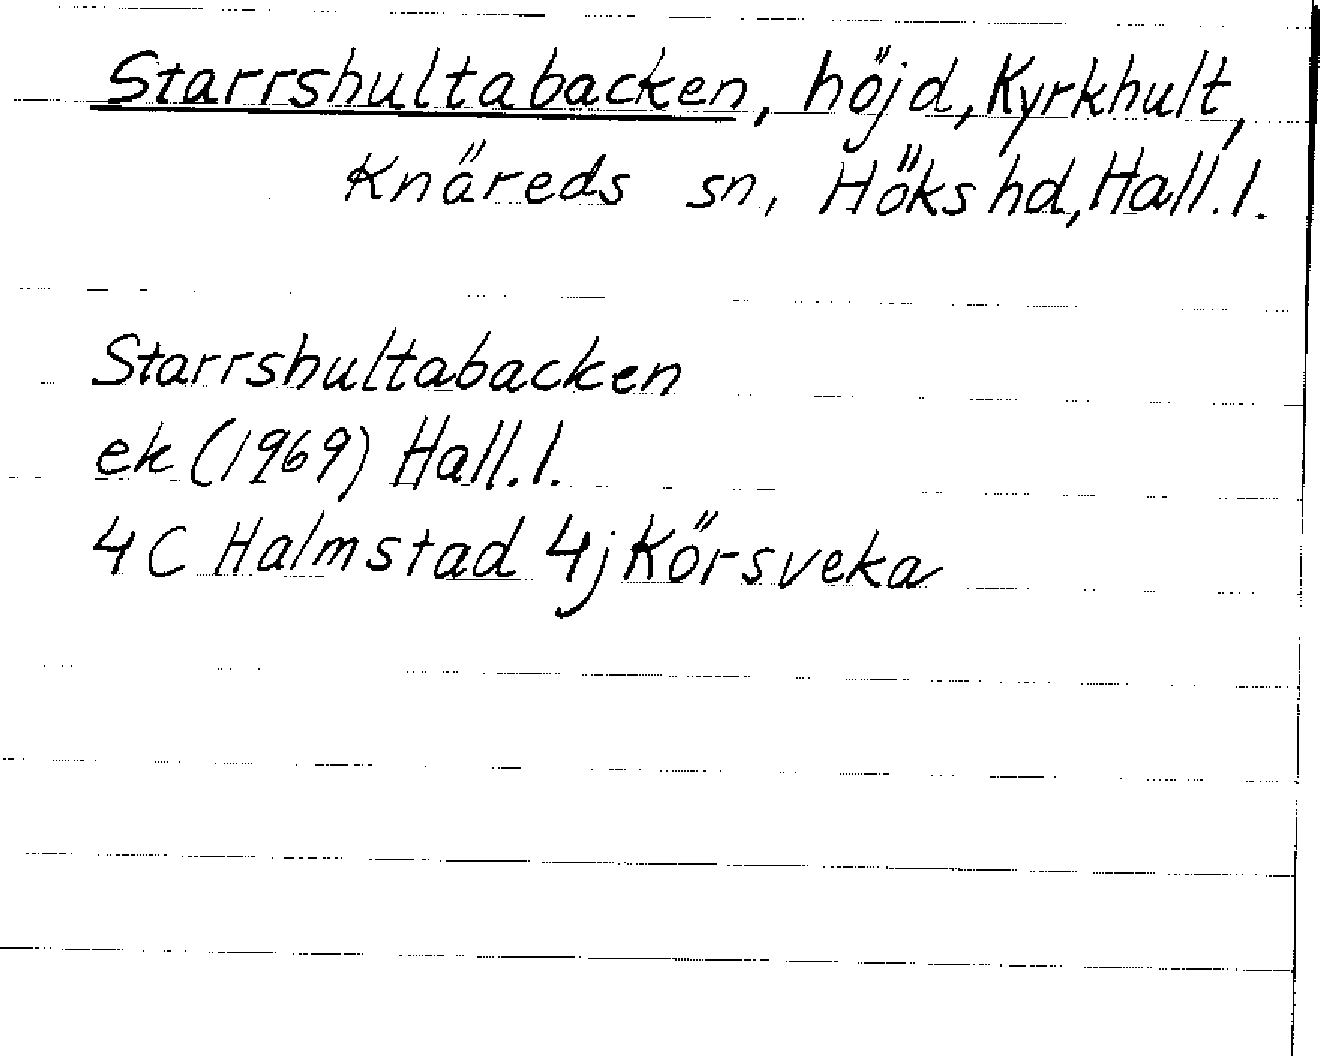 Starrshultabacken, höjd, Kyrkhult,
Knäreds sn, Höks hd, Hall. l.
Starrshultabacken
ek (1969) Hall. l.
4 C Halmstad 4j Körsveka